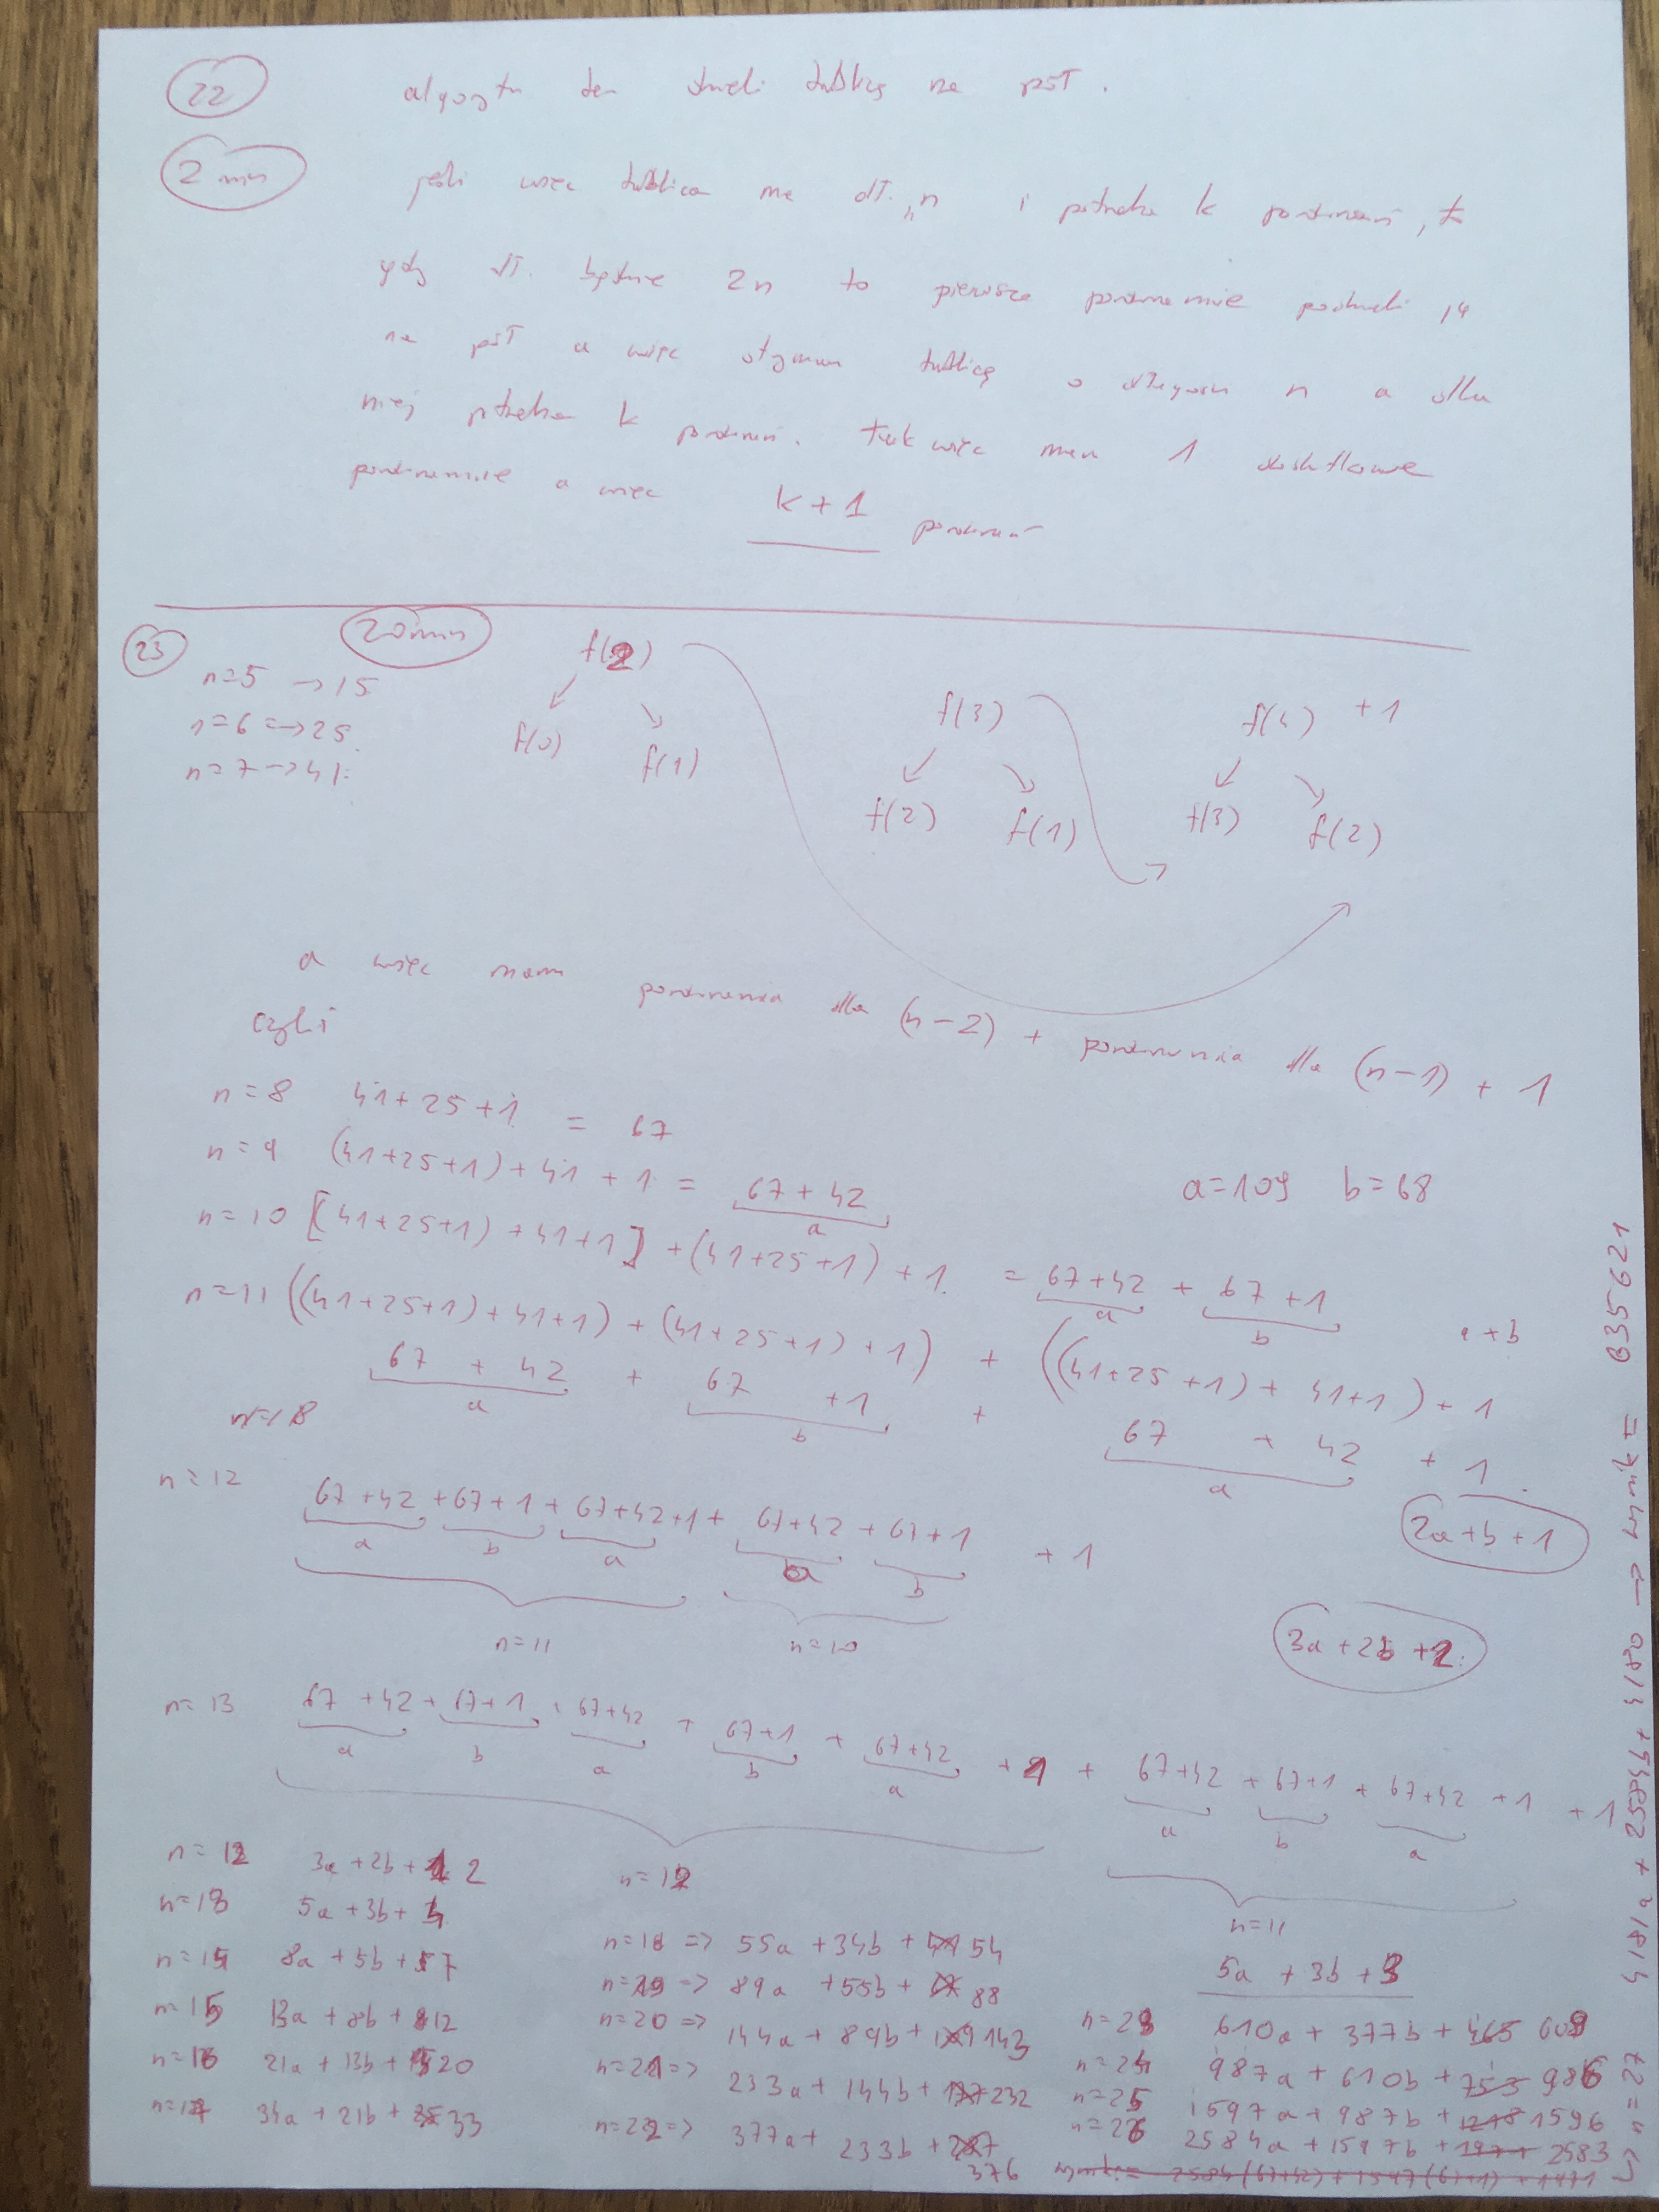 22
algorytm ten dzieli tablicę na pół.
2 min
jeśli więc tablica ma dł. „n i potrzeba k porównań, to
gdy dł. będzie 2n to pierwsze porównanie podzieli ją
na pół a więc otrzymam tablicę o długości n a dla
niej potrzeba k porównań. tak więc mam 1 dodatkowe
porównanie a więc k+1 porównań
23
20min
n=5 → 15
n=6 → 25
n=7 → 41
f(2)
f(0) f(1)
f(3)
f(2) f(1)
f(4) +1
f(3) f(2)
a więc mam porównania dla (n-2) + porównania dla (n-1) + 1
czyli
n=8 41+25+1 = 67
n=9 (41+25+1)+41+1 = 67+42
a
a=109 b=68
n=10 [(41+25+1)+41+1]+(41+25+1)+1 = 67+42 + 67+1
a b
a+b
n=11 ((41+25+1)+41+1)+(41+25+1)+1) + ((41+25+1)+41+1)+1
67 + 42 + 67 +1 + 67 + 42 + 1
a b a
2a+b+1
n=12 67+42+67+1+67+42+1+67+42+67+1 +1
a b a a b
n=11 n=10
3a+2b+2
n=13 67+42+67+1+67+42+67+1+67+42+2+67+42+67+1+67+42+1+1
a b a b a a b a
n=12
n=11
5a+3b+3
n=12 3a+2b+2
n=13 5a+3b+4
n=14 8a+5b+7
n=15 13a+8b+12
n=16 21a+13b+20
n=17 34a+21b+33
n=18 => 55a+34b+54
n=19 => 89a+55b+88
n=20 => 144a+89b+143
n=21 => 233a+144b+232
n=22 => 377a+233b+376
n=23 610a+377b+465 609
n=24 987a+610b+753 986
n=25 1597a+987b+1218 1596
n=26 2584a+1597b+2583
n=27 4181a+2584b+4180 → wynik = 635621